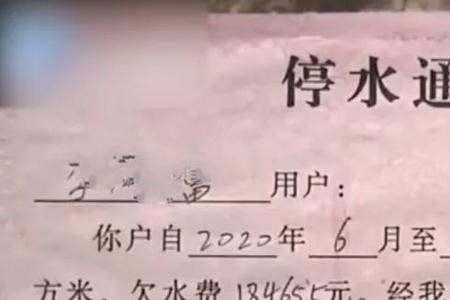 停水通
用户:
你户自2020年6月至
方米,欠水费184655元,经我